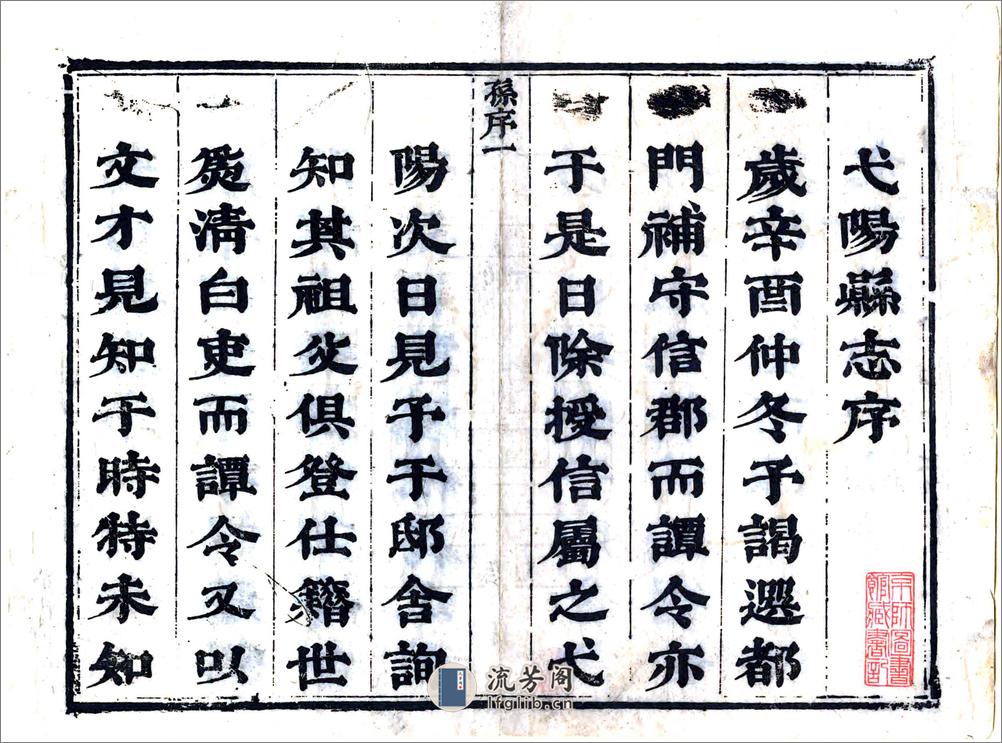 弋陽縣志序
歲辛酉仲冬予謁選都
門補守信郡而譚令亦
于是日除授信屬之弋
孫序一
陽次日見予于邸舍詢
知其祖父俱登仕籍世
爲清白吏而譚令又以
文才見知于時特未知
京師圖書
館藏書記
流芳阁
lfglib.cn